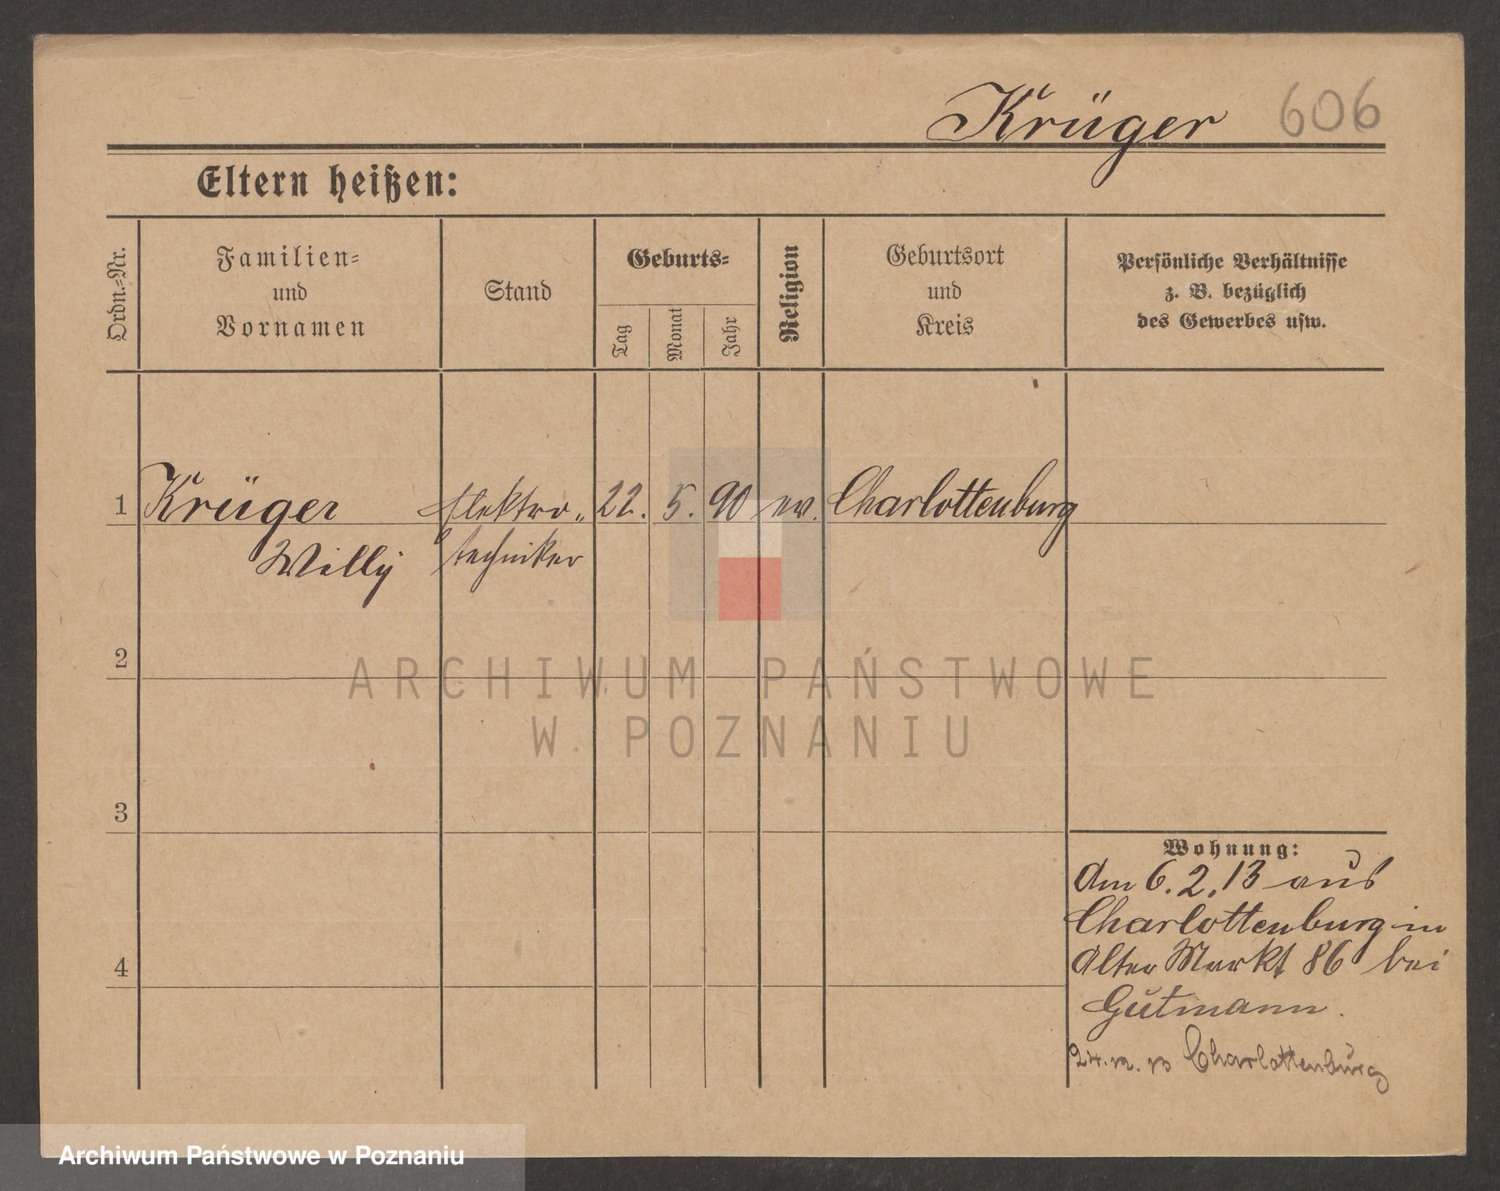 Krüger 606
Eltern heißen:
Ordn.-Nr.
Familien-
und
Vornamen
Stand
Geburts-
Tag
Monat
Jahr
Religion
Geburtsort
und
Kreis
Persönliche Verhältnisse
z. B. bezüglich
des Gewerbes usw.
1 Krüger Elektro- 22. 5. 90 ev. Charlottenburg
Willy techniker
2
3
4
Wohnung:
Am 6.2.13 aus
Charlottenburg in
Alter Markt 86 bei
Gutmann.
24.12.13 Charlottenburg
ARCHIWUM PAŃSTWOWE
W POZNANIU
Archiwum Państwowe w Poznaniu